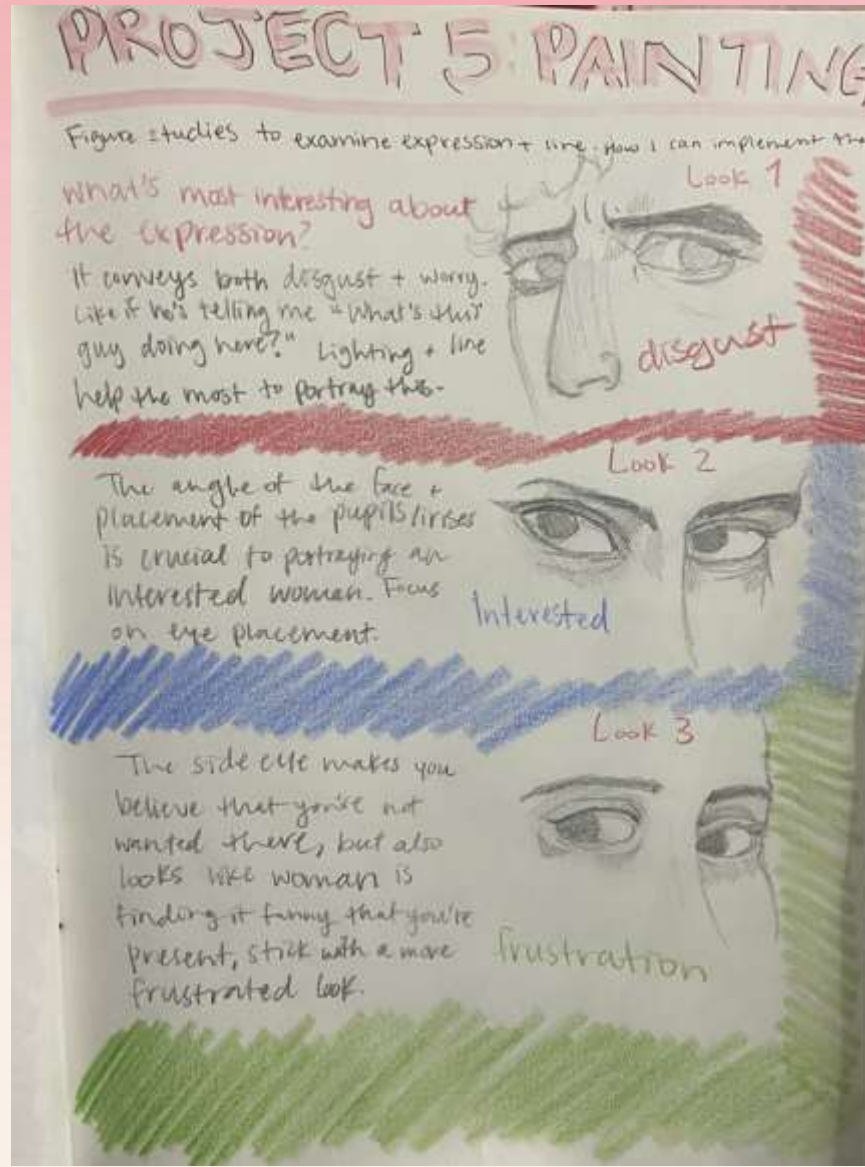 PROJECT 5: PAINTING
Figure studies to examine expression + line. How I can implement
Look 1
What's most interesting about
the expression?
It conveys both disgust + worry.
Like if he's telling me "What's this
guy doing here?" Lighting + line
help the most to portray this.
disgust
Look 2
The angle of the face +
placement of the pupils/irises
is crucial to portraying an
interested woman. Focus
on eye placement.
Interested
Look 3
The side eye makes you
believe that you're not
wanted there, but also
looks like woman is
finding it funny that you're
present, stick with a more
frustrated look.
frustration